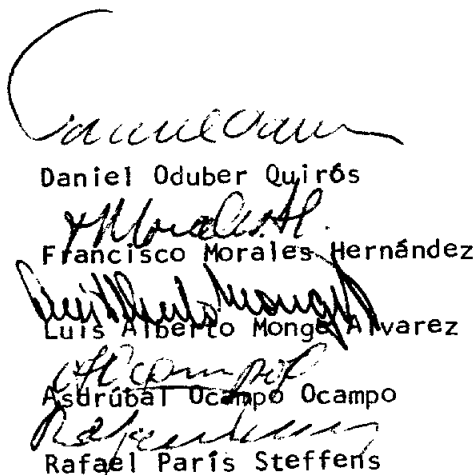 Daniel Oduber Quirós
Francisco Morales Hernández
Luis Alberto Monge Alvarez
Asdrúbal Ocampo Ocampo
Rafael París Steffens